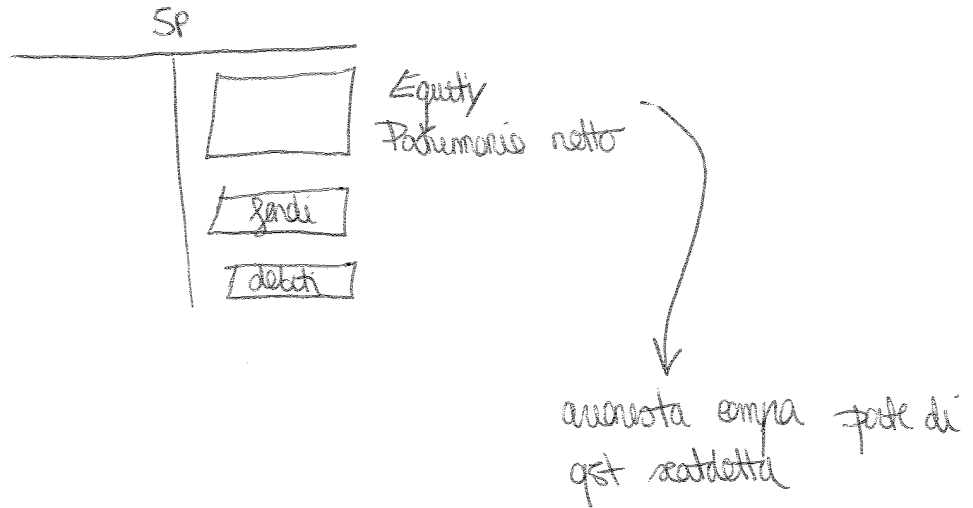 SP
Equity
Patrimonio netto
fondi
debiti
compra parte di
qst scatoletta